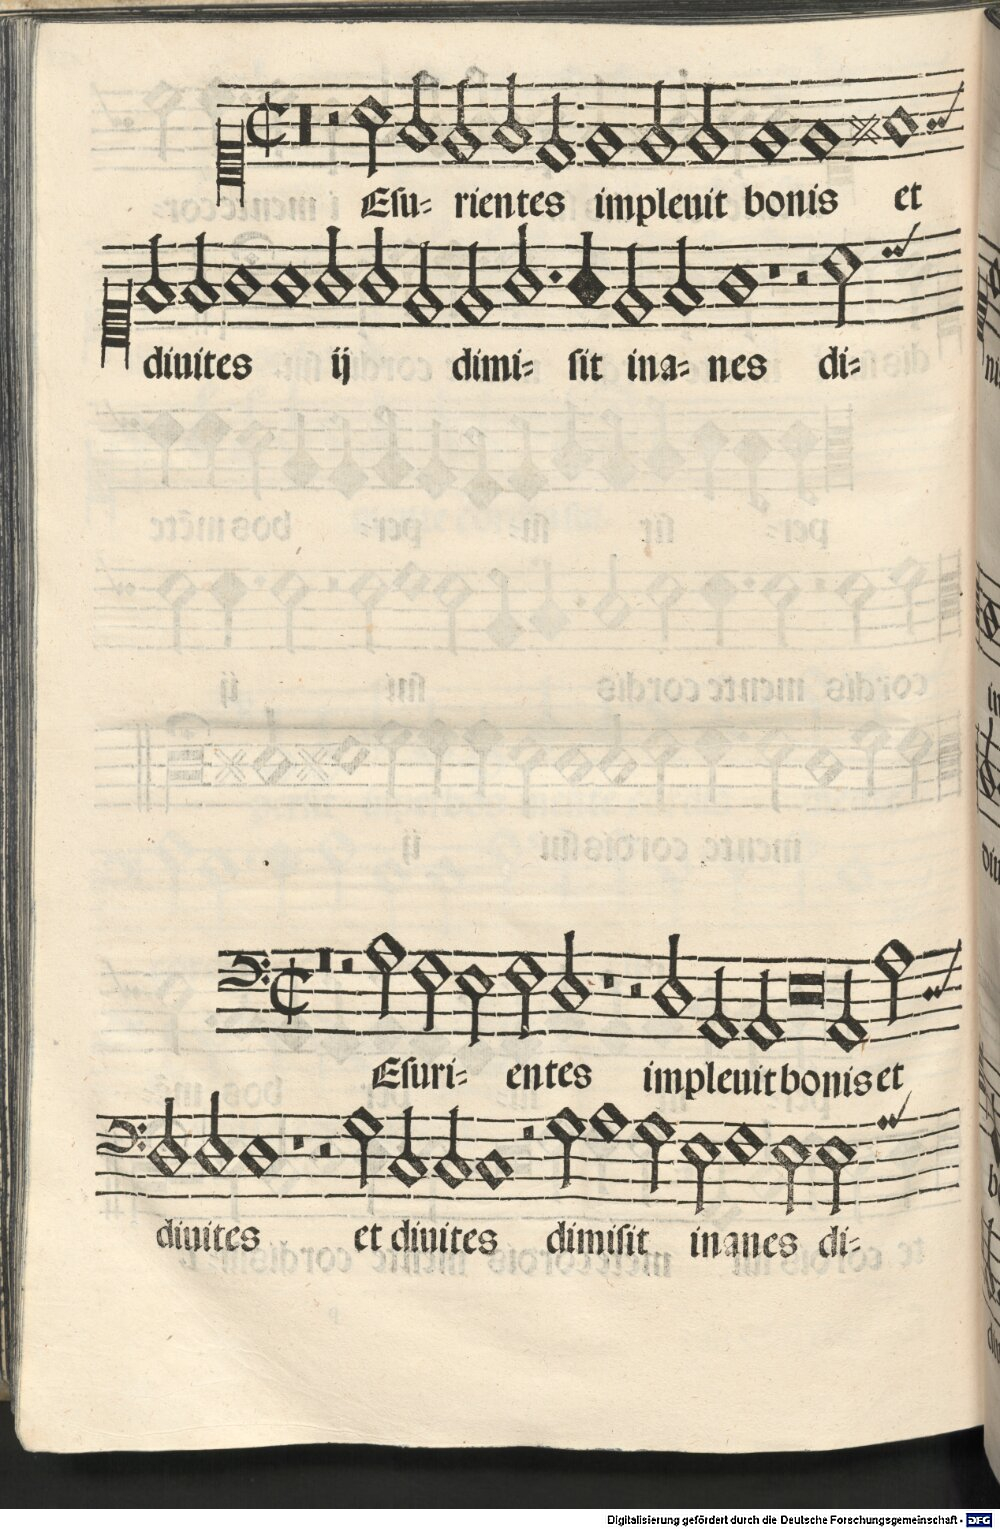 Esu- rientes impleuit bonis et
diuites ij dimi- sit ina- nes di-
Esuri- entes impleuit bonis et
diuites et diuites dimisit inanes di-
Digitalisierung gefördert durch die Deutsche Forschungsgemeinschaft - DFG